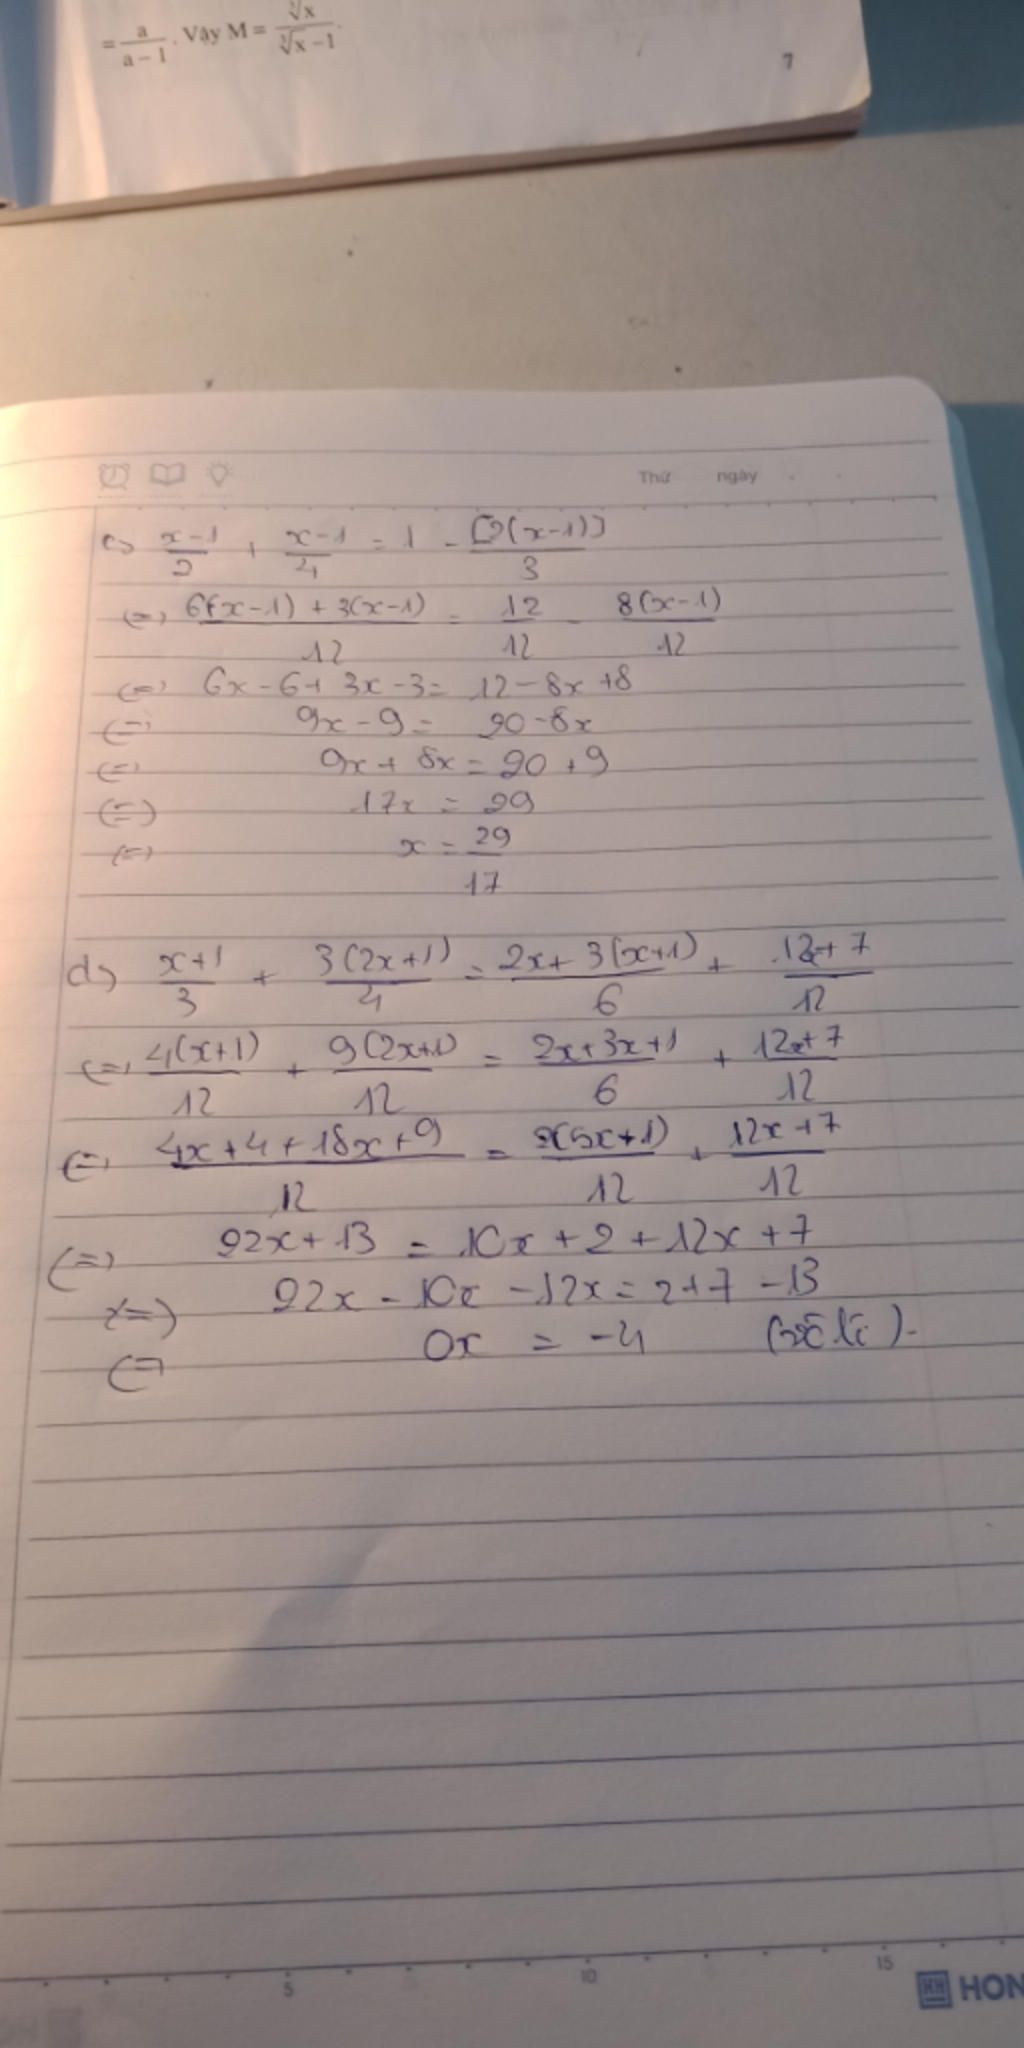 = a/(a – 1). Vậy M = ∛x/(∛x – 1).
7
Thứ ngày
c) (x-1)/2 + (x-1)/4 = 1 - [2(x-1)]/3
(=) (6(x-1) + 3(x-1))/12 = 12/12 - 8(x-1)/12
(=) 6x - 6 + 3x - 3 = 12 - 8x + 8
(=) 9x - 9 = 20 - 8x
(=) 9x + 8x = 20 + 9
(=) 17x = 29
(=) x = 29/17
d) (x+1)/3 + 3(2x+1)/4 = (2x + 3(x+1))/6 + (12x + 7)/12
(=) 4(x+1)/12 + 9(2x+1)/12 = (2x+3x+1)/6 + (12x+7)/12
(=) (4x+4+18x+9)/12 = 2(5x+1)/12 + (12x+7)/12
(=) 22x + 13 = 10x + 2 + 12x + 7
(=) 22x - 10x - 12x = 2 + 7 - 13
(= 0x = -4
5 10 15
HH HON